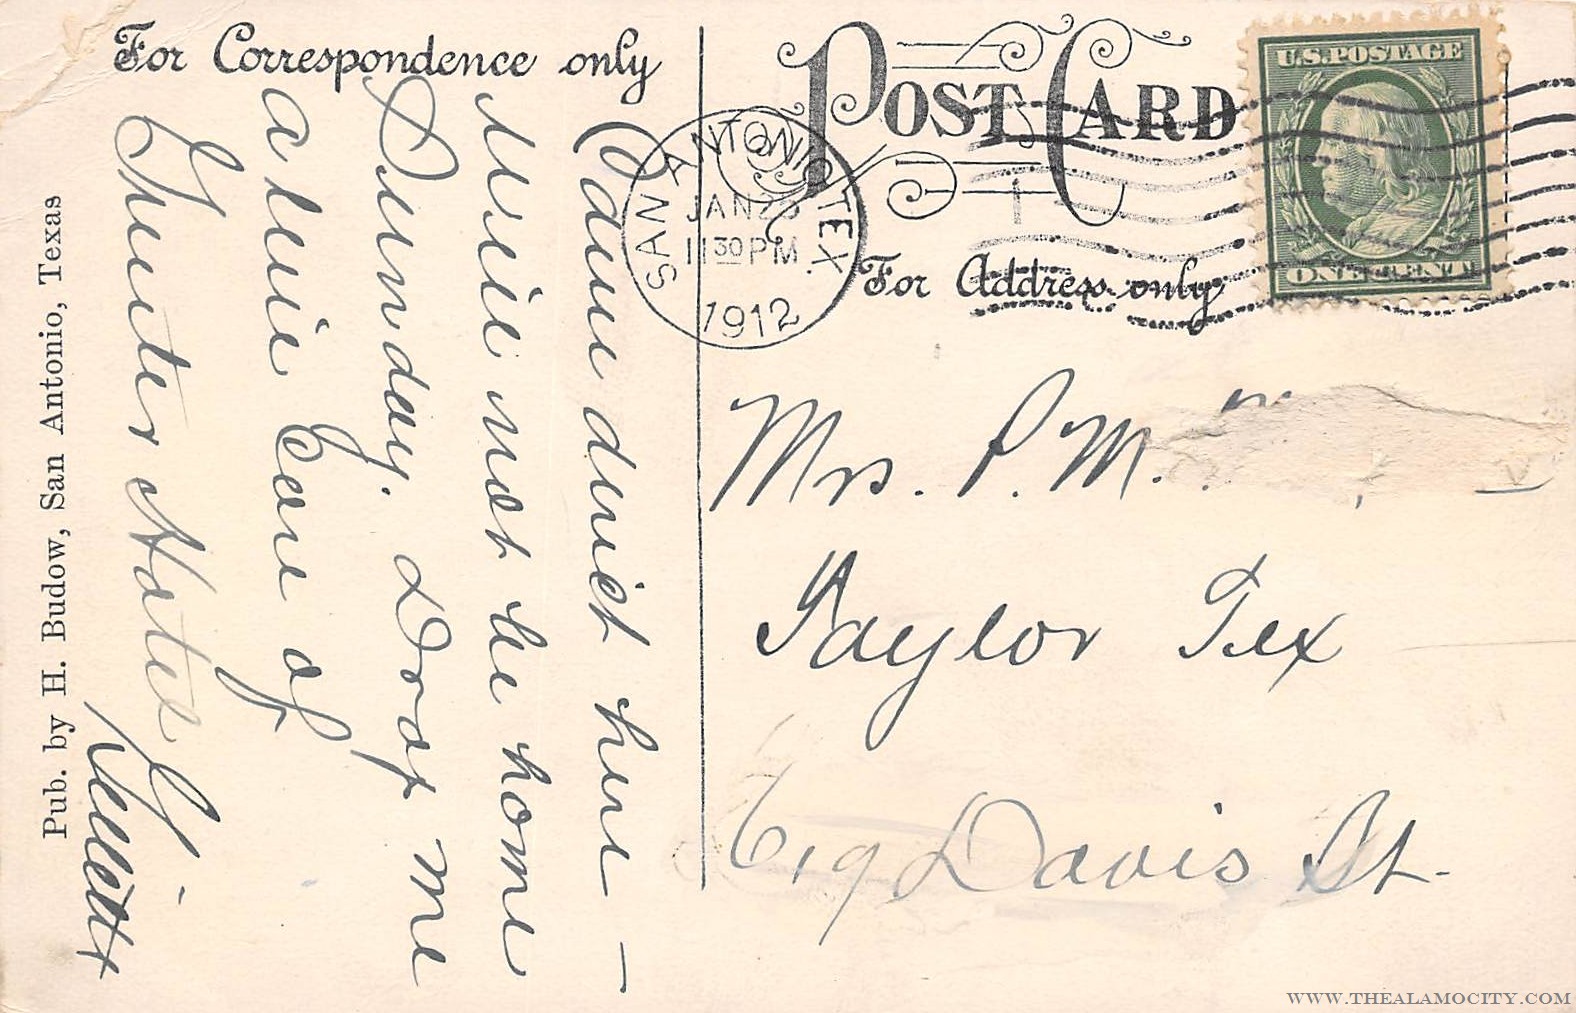 For Correspondence only
Pub. by H. Budow, San Antonio, Texas
quiet here –
Will not be home
Sunday. Drop me
a line Care of
Gunter Hotel
POST CARD
U.S. POSTAGE
ONE CENT
SAN ANTONIO, TEX.
JAN
11 30 PM
1912
1
For Address only
Mrs. P. M.
Taylor Tex
619 Davis St.
WWW.THEALAMOCITY.COM